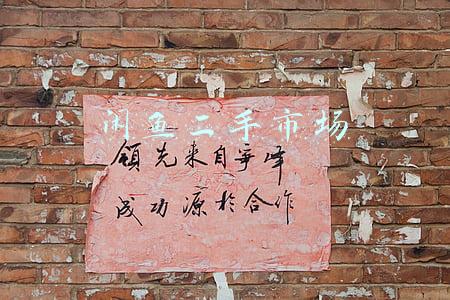 闲鱼二手市场
领先来自争峰
成功源於合作